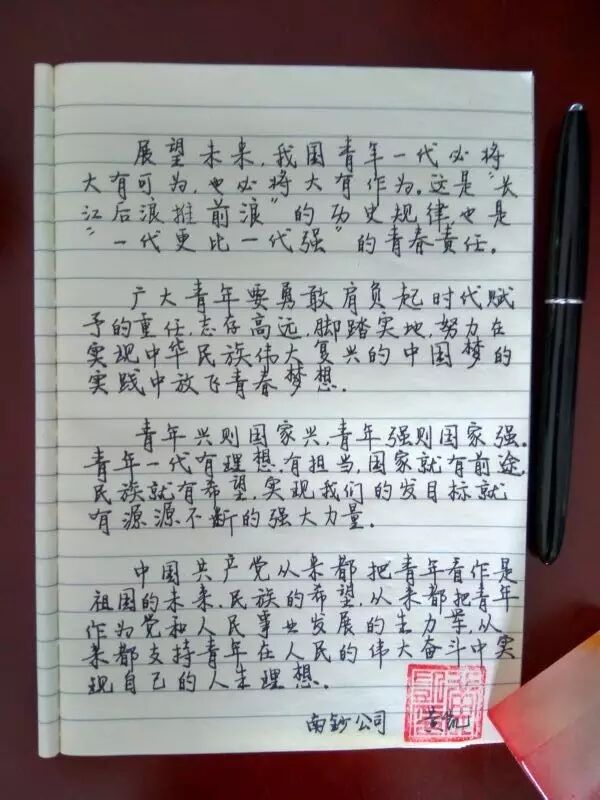 展望未来,我国青年一代必将
大有可为,也必将大有作为。这是“长
江后浪推前浪”的历史规律,也是
“一代更比一代强”的青春责任。
广大青年要勇敢肩负起时代赋
予的重任,志存高远,脚踏实地,努力在
实现中华民族伟大复兴的中国梦的
实践中放飞青春梦想.
青年兴则国家兴,青年强则国家强。
青年一代有理想.有担当,国家就有前途,
民族就有希望,实现我们的发目标就
有源源不断的强大力量。
中国共产党从来都把青年看作是
祖国的未来.民族的希望,从来都把青年
作为党和人民事业发展的生力军,从
来都支持青年在人民的伟大奋斗中实
现自己的人生理想.
南钞公司 黄